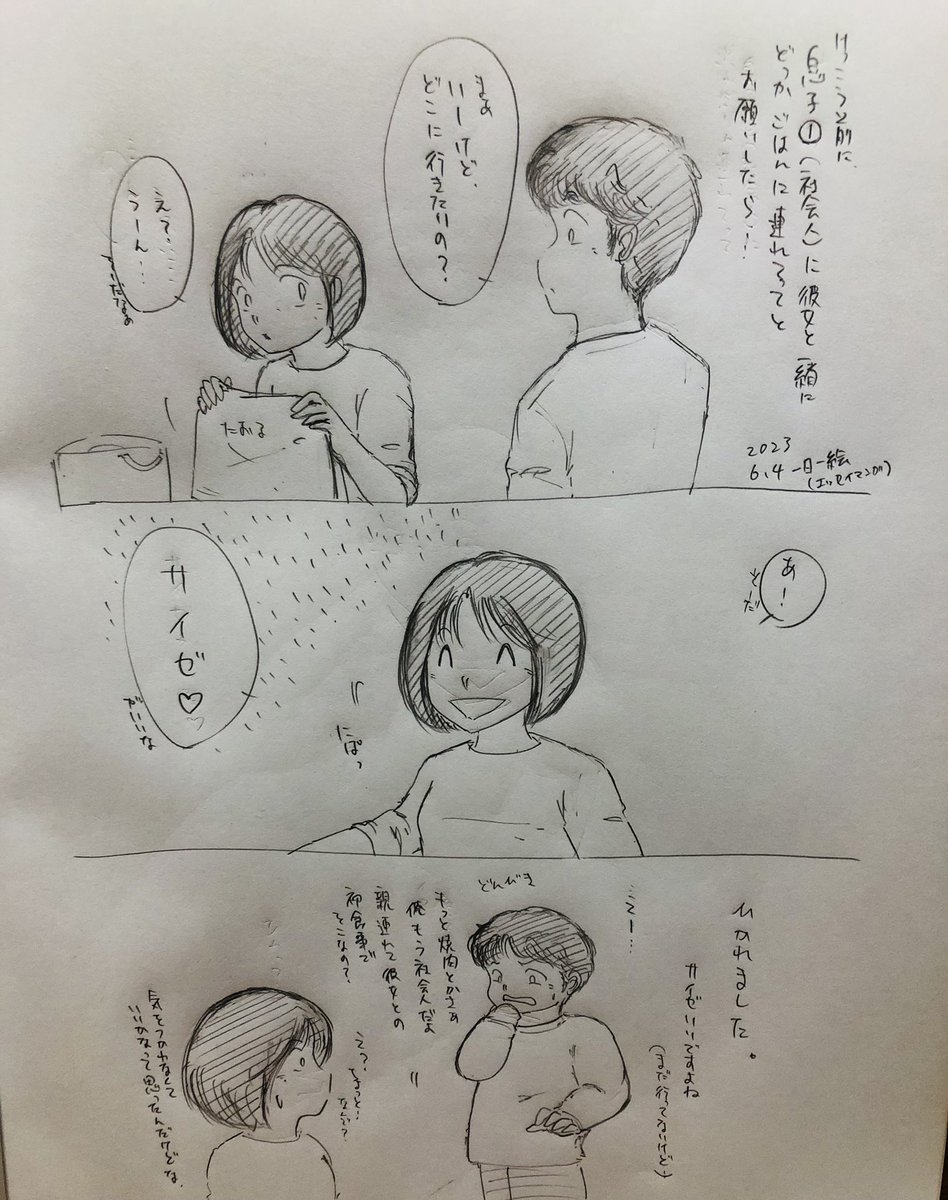 けっこう前に、
息子①(社会人)に彼女と一緒に
どっかごはんに連れてってと
お願いしたら、
まぁ
いーけど、
どこに行きたいの?
えっ、
うーん…
たおる
2023
6.4 一日一絵
(エッセイマンガ)
あ!
そーだ
サイゼ♡
がいいな
にぱっ
ひかれました。
サイゼいいですよね
(まだ行ってないけど)
えー…
どんびき
もっと焼肉とかさぁ
俺もう社会人だよ
親連れて彼女との
初食事で
そこなの?
え?
ちょっと!
なんで?
気をつかわなくて
いいかなって思ったんだけどな、